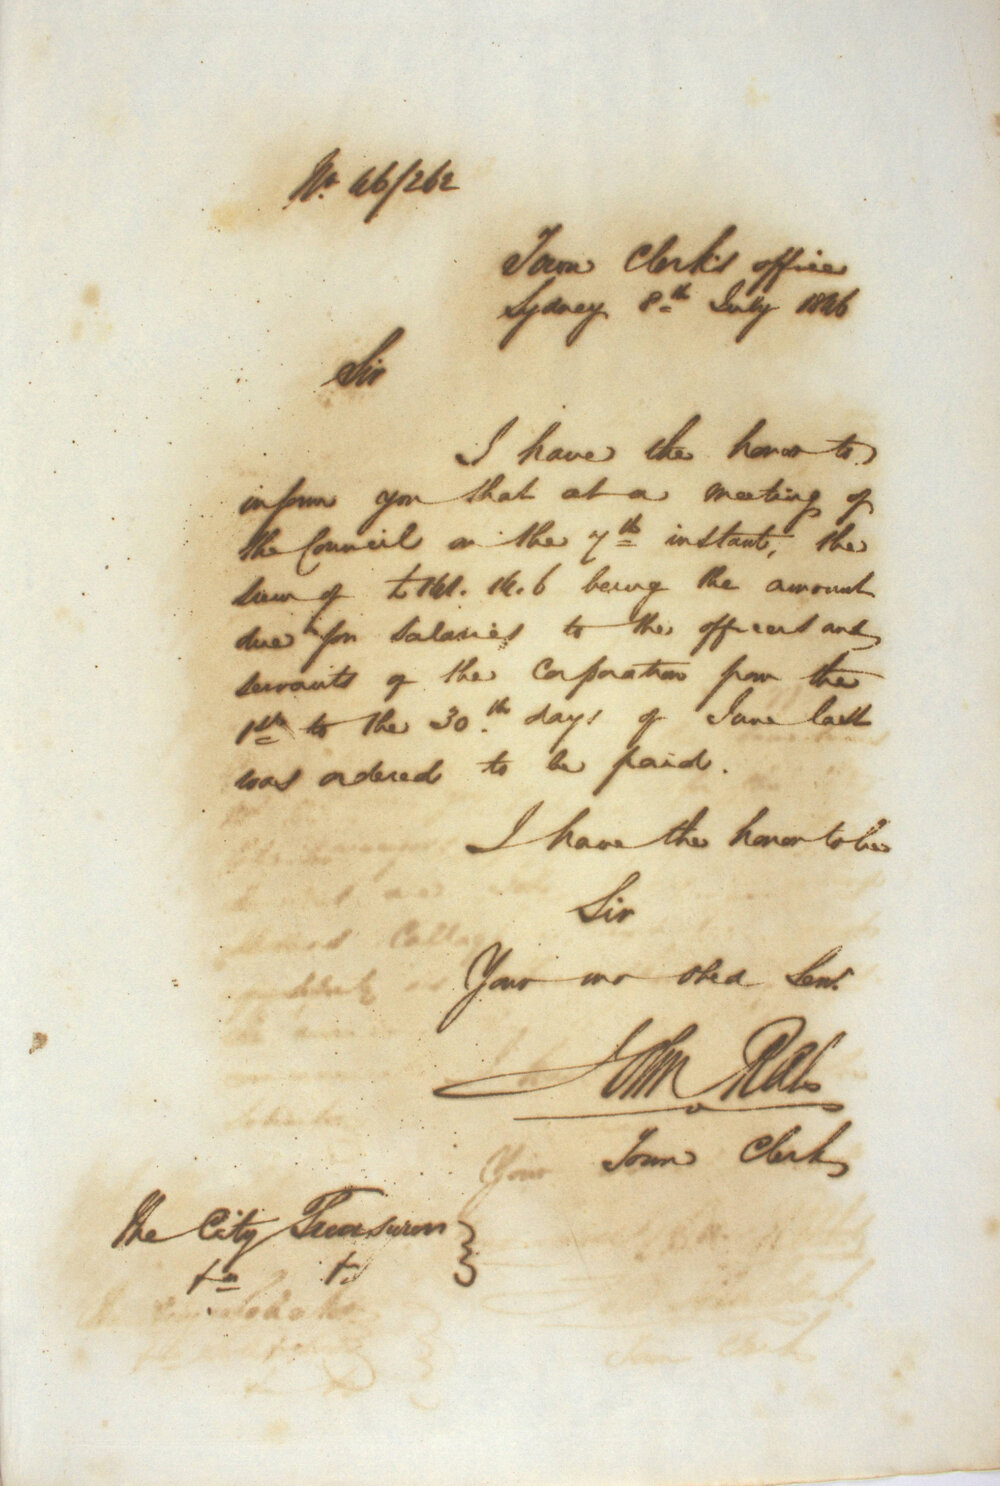 No. 46/262
Town Clerk's office
Sydney 8th July 1846
Sir
I have the honor to
inform you that at a meeting of
the Council on the 7th instant, the
sum of being the amount
due for salaries to the officers and
servants of the Corporation from the
1st to the 30th days of June last
was ordered to be paid.
I have the honor to be
Sir
Your obed Serv.
John Rae
Town Clerk
The City Treasurer